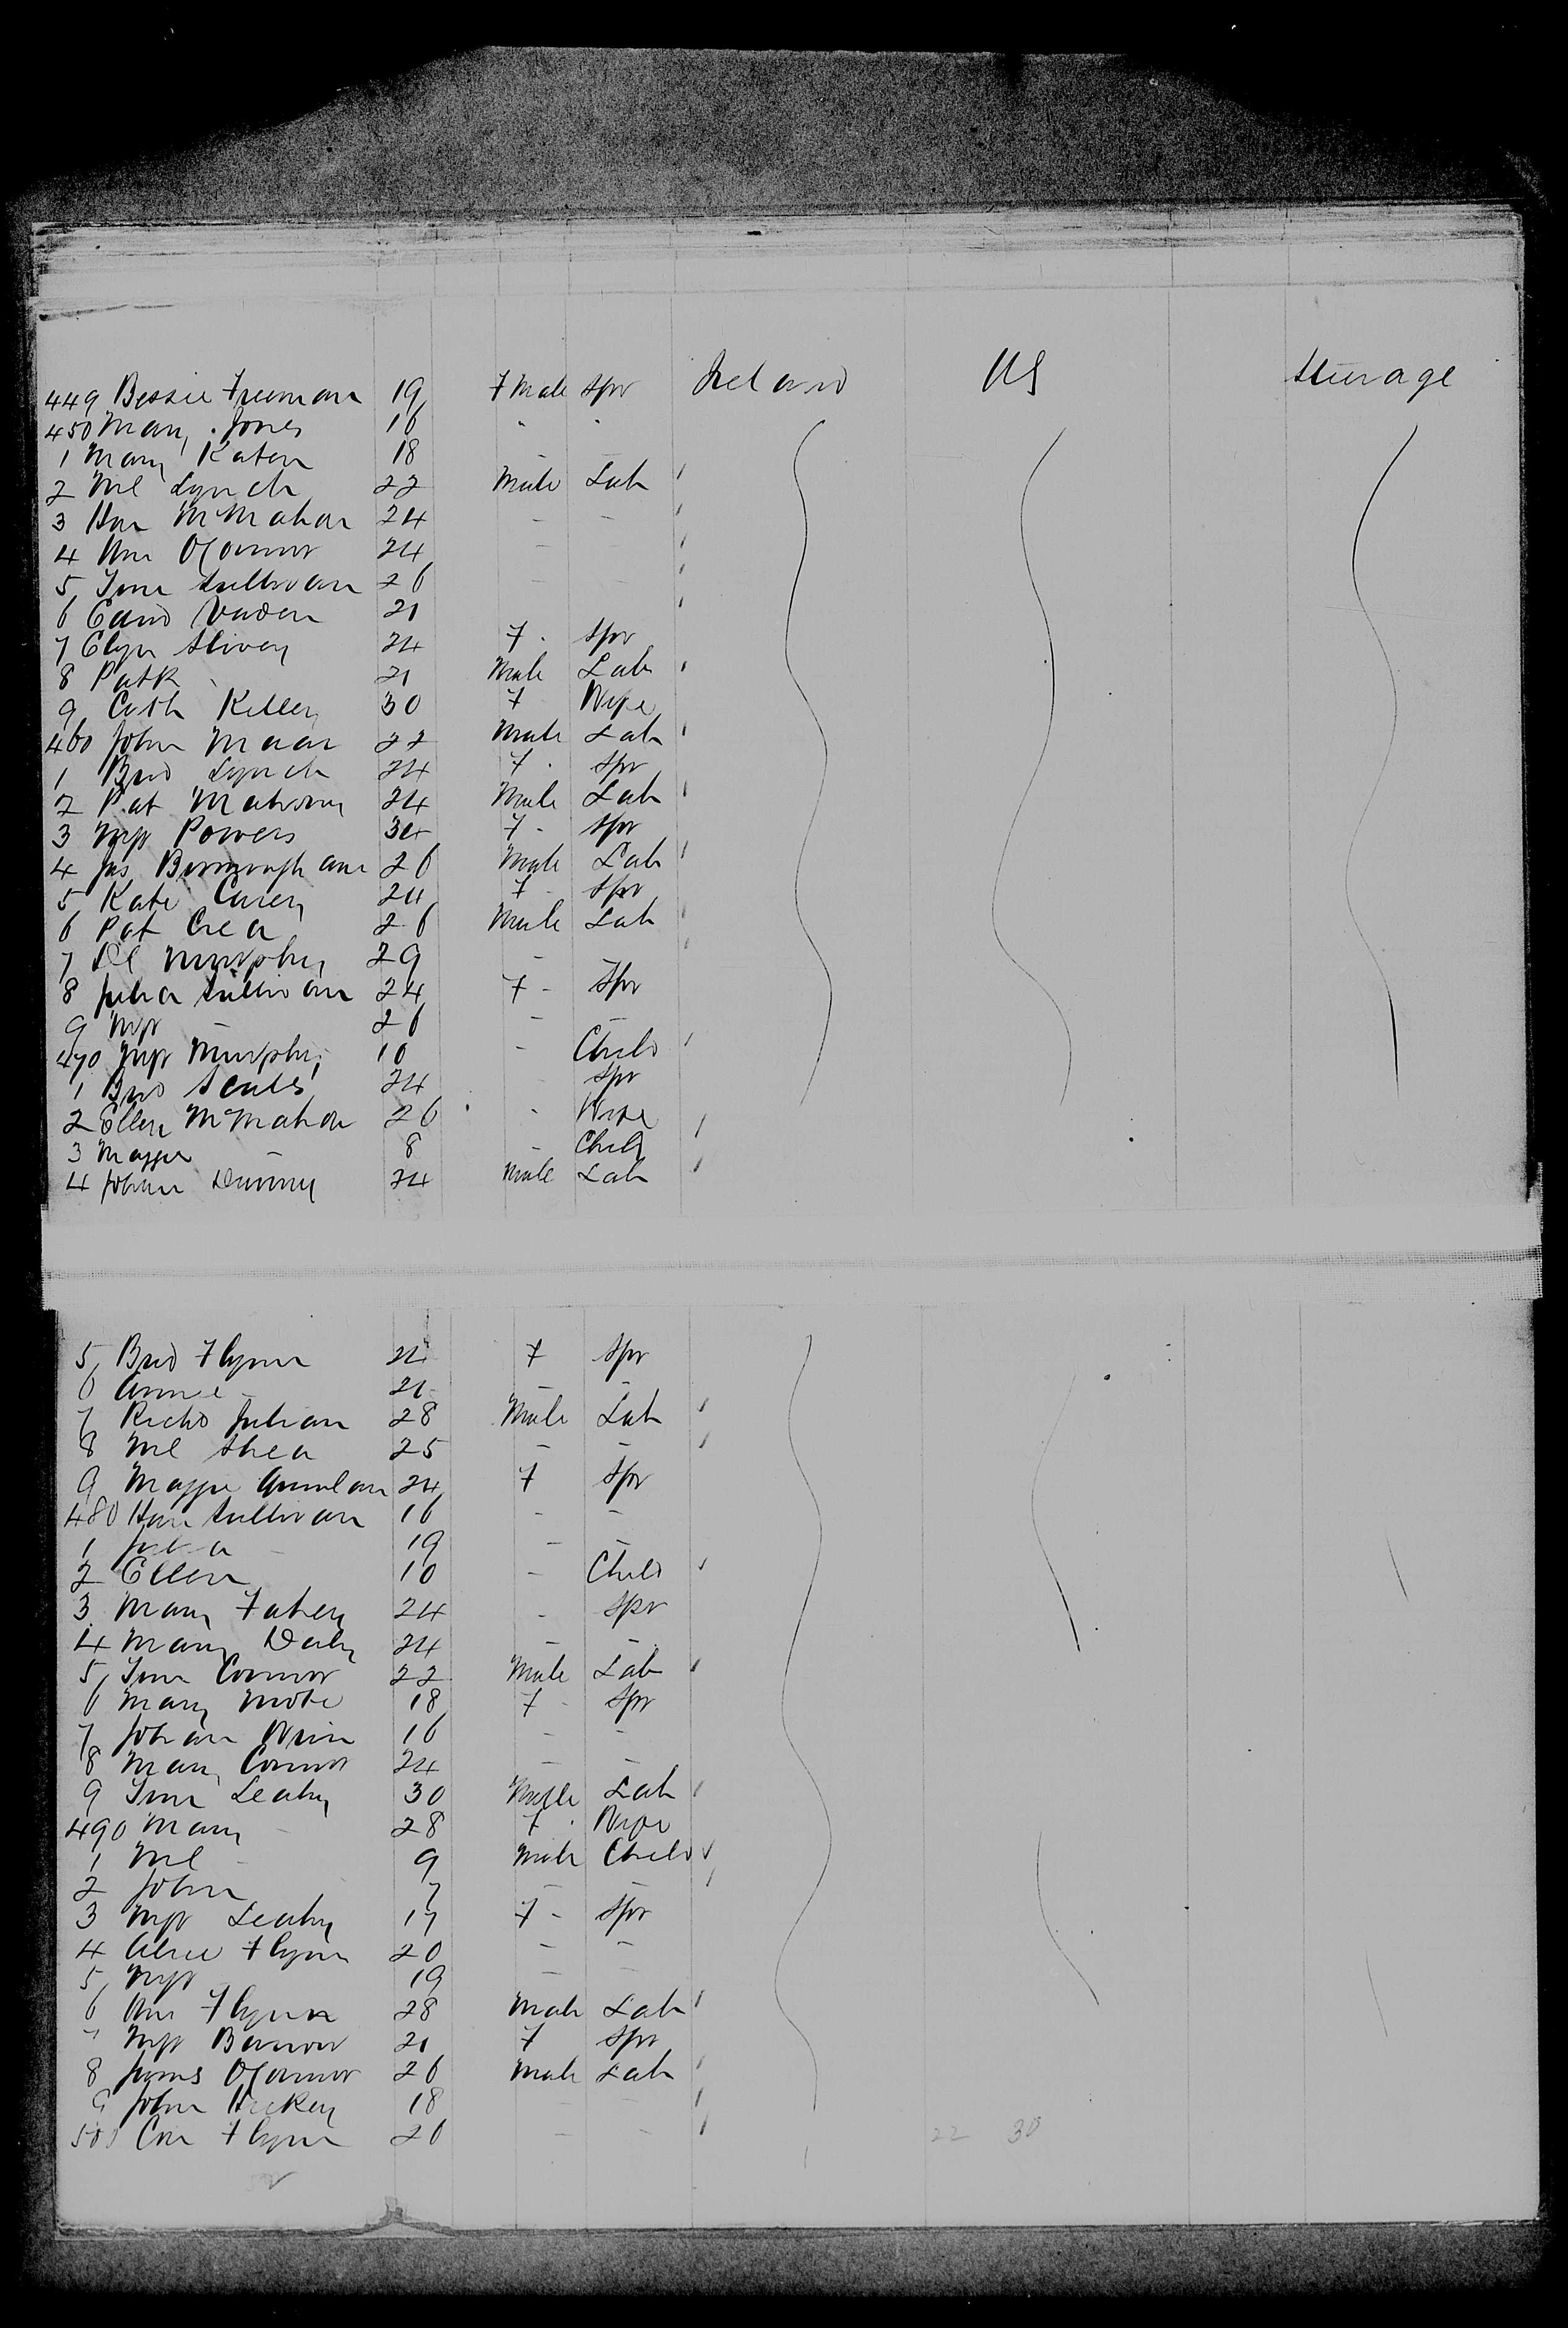 449 Bessie Freeman 19 F Male Spr Ireland US Steerage
450 Mary Jones 16 " "
1 Mary Katen 18 - -
2 Ml Lynch 22 Male Lab
3 Han McMahon 24 - -
4 Wm O'Connor 24 - -
5 Timr Sullivan 26 - -
6 Edmd 21
7 Slivey 24 F - Spr
8 Patk - 21 Male Lab
9 Cath Kelley 30 F Wife
460 John Maar 22 Male Lab
1 Brid Lynch 24 F - Spr
2 Pat Mahony 24 Male Lab
3 Mgt Powers 34 F - Spr
4 Jas 26 Male Lab
5 Kate Carey 24 F - Spr
6 Pat Crea 26 Male Lab
7 Dl Murphy 29 - -
8 Julia Sullivan 24 F - Spr
9 Mgt - 26 - -
470 Mgt Murphy 10 - Child
1 Brid Scales 24 - Spr
2 Ellen McMahon 26 - Wife
3 Maggie - 8 - Child
4 Johan 24 Male Lab
5 Brid Flynn 22 F Spr
6 Annie - 21 - -
7 Richd Julian 28 Male Lab
8 Ml Shea 25 - -
9 Maggie Quinlan 24 F Spr
480 Han Sullivan 16 - -
1 Julia - 19 - -
2 Ellen 10 - Child
3 Mary Fahey 24 - Spr
4 Mary Daly 24 - -
5 Timr Connor 22 Male Lab
6 Mary More 18 F - Spr
7 Johan 16 - -
8 Mary Connor 24 - -
9 Timr Leahy 30 Male Lab
490 Mary - 28 F - Wife
1 Ml - 9 Male Child
2 John 7 - -
3 Mgt Leahy 17 F - Spr
4 Alice Flynn 20 - -
5 Mgt 19 - -
6 Wm Flynn 28 Male Lab
7 Mgt 21 F Spr
8 James O'Connor 26 Male Lab
9 John Hickey 18 - -
500 Con Flynn 20 - - 22 30